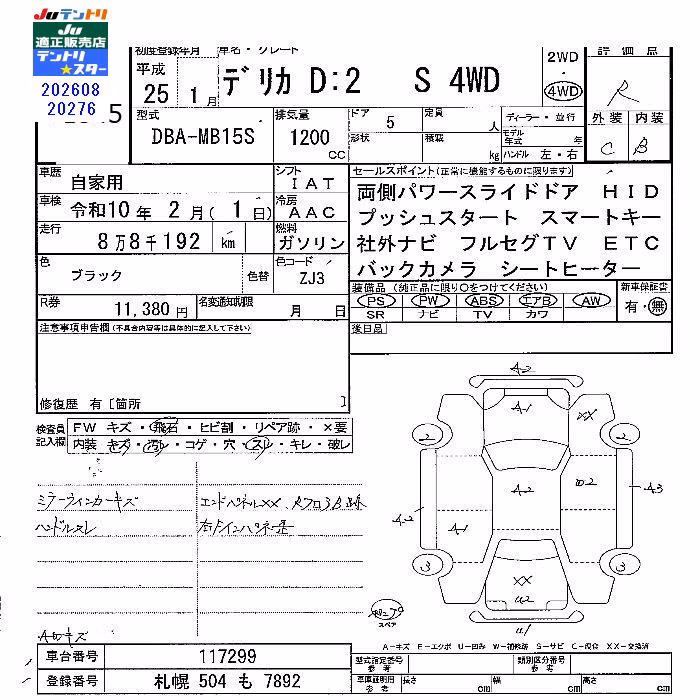 JUテントリ
JU
適正販売店
テントリ
★スター
202608
20276
5
初度登録年月
車名・グレード
平成
25 1月
デリカ D:2 S 4WD
2WD
4WD
評価点
R
外装 内装
C B
型式
DBA-MB15S
排気量
1200
CC
ドア
5
定員
人
形状
積載
kg
ディーラー・並行
モデル年式
年
ハンドル 左・右
車歴
自家用
シフト
IAT
車検
令和10年 2月( 1日)
冷房
AAC
走行
8万8千192 km
燃料
ガソリン
色
ブラック
色替
色コード
ZJ3
R券
11,380円
名変通知期限
月 日
セールスポイント(正常に機能するものに限ります)
両側パワースライドドア HID
プッシュスタート スマートキー
社外ナビ フルセグTV ETC
バックカメラ シートヒーター
装備品 (純正品に限り○をつけてください)
新車保証書
PS PW ABS エアB AW
有・無
SR ナビ TV カワ
後日品
注意事項申告欄(不具合内容等は具体的に記入して下さい)
修復歴 有 [箇所 ]
検査員
記入欄
FW キズ・飛石・ヒビ割・リペア跡・×要
内装 キズ・汚レ・コゲ・穴・スレ・キレ・破レ
ミラーウィンカーキズ
ハンドルスレ
エンドパネルXX
A-2
A-1
XX
2
2
A-2
A-2
A-1
U2
A-3
3
3
XX
U2
U1
スペア
A-キズ E-エクボ U-凹み W-補修跡 S-サビ C-腐食 XX-交換済
車台番号
117299
登録番号
札幌 504 も 7892
型式指定番号
参考
類別区分番号
参考
車庫証明用
参考
長さ cm
幅 cm
高さ cm